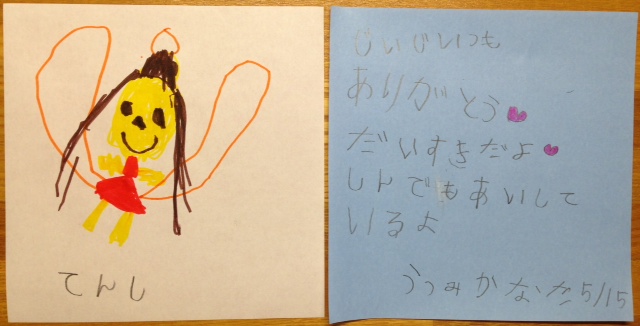 てんし
じいじいつも
ありがとう
だいすきだよ
しんでもあいして
いるよ
うつみかなた5/15